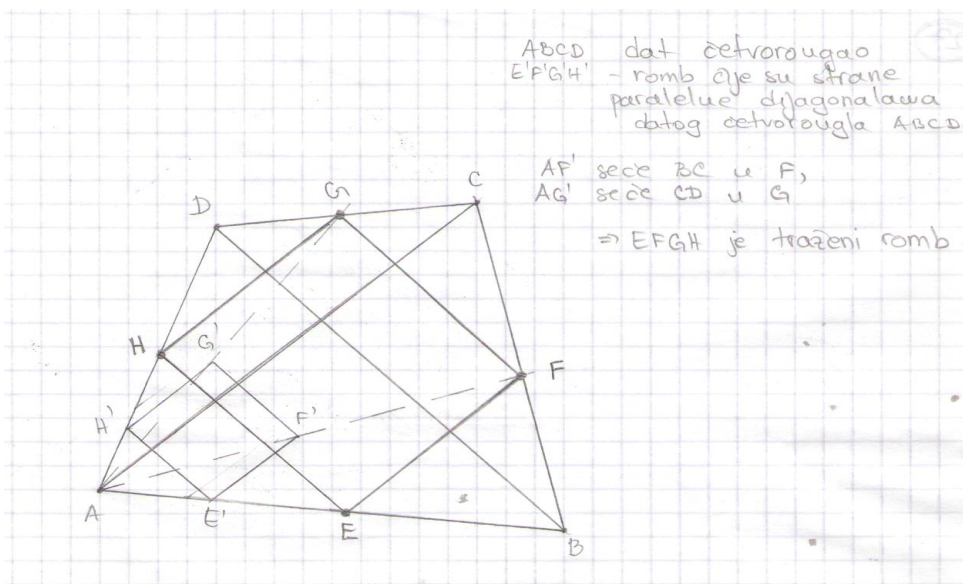 ABCD dat četvorougao
E'F'G'H' - romb čije su strane
paralelne dijagonalama
datog četvorougla ABCD
AF' seče BC u F,
AG' seče CD u G
⇒ EFGH je traženi romb
D
G
C
H
G'
F
H'
F'
A
E'
E
B